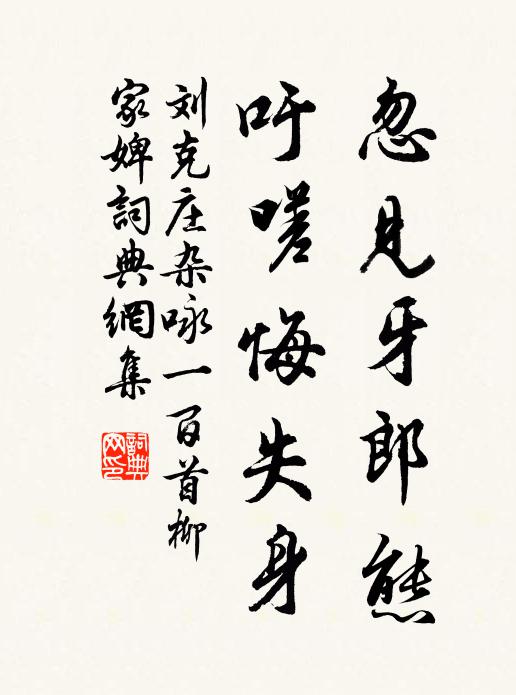 忽见牙郎熊
吁嗟悔失身
刘克庄杂咏一百首柳
家婢詞典網集
詞典网印